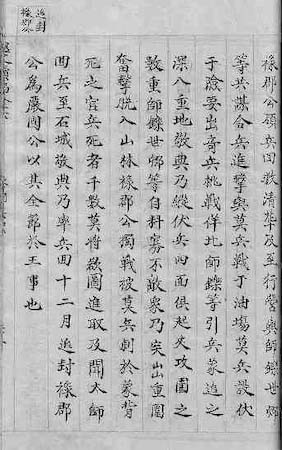 追封
祿郡公
祿郡公領兵回救清華及至行營與師鑅世鄉
等共謀合兵進擊與莫兵戰于油塲莫兵設伏
于險要出奇兵挑戰佯北師鑅等引兵蒙追之
深入重地敬典乃縱伏兵四面俱起夾攻圍之
數重師鑅世鄉等自料寡不敵衆乃突出重圍
奮擊脫入山林祿郡公獨戰被莫兵刺於蒙背
死之官兵死者千數莫將欲圖進取及聞太師
回兵至石城敬典乃率兵回十二月追封祿郡
公為嚴國公以其全節於王事也